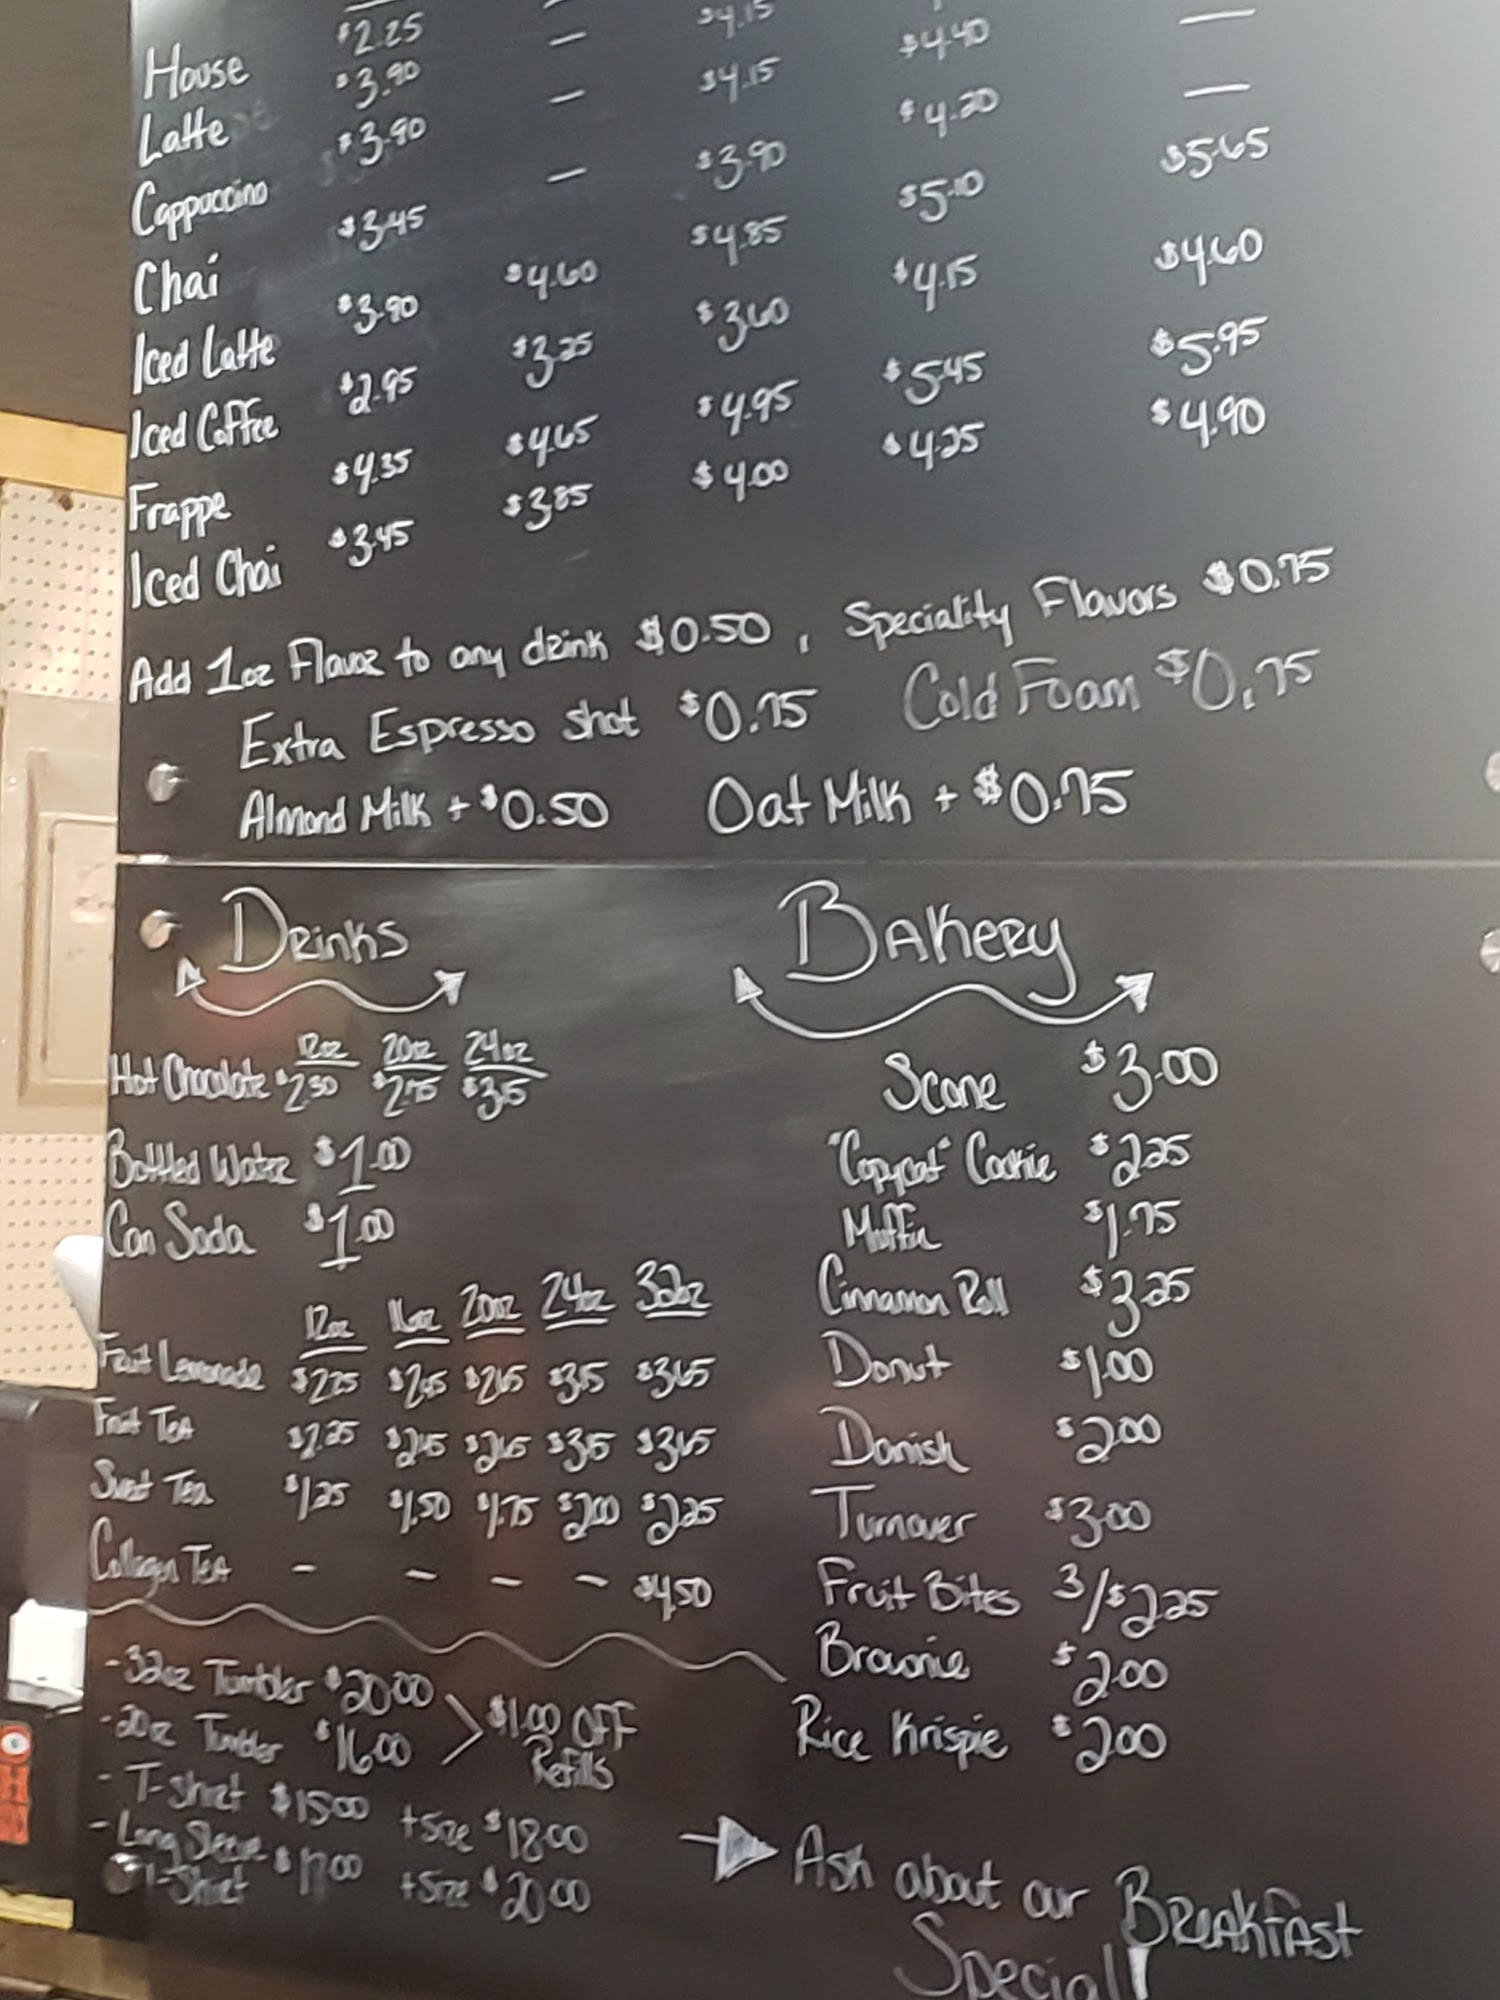 House $2.25 —
Latte $3.90 — $4.15
Cappuccino $3.90 — $4.15 $4.40 —
Chai $3.45 — $3.90 $4.20 —
Iced Latte $3.90 $4.60 $4.85 $5.10 $5.65
Iced Coffee $2.95 $3.25 $3.60 $4.15 $4.60
Frappe $4.35 $4.65 $4.95 $5.45 $5.95
Iced Chai $3.45 $3.85 $4.00 $4.25 $4.90
Add 1oz Flavor to any drink $0.50, Speciality Flavors $0.75
Extra Espresso shot $0.75 Cold Foam $0.75
Almond Milk + $0.50 Oat Milk + $0.75
Drinks
12oz 20oz 24oz
Hot Chocolate $2.50 $2.75 $3.15
Bottled Water $1.00
Can Soda $1.00
12oz 16oz 20oz 24oz 32oz
Fruit Lemonade $2.25 $2.45 $2.65 $3.15 $3.65
Fruit Tea $2.25 $2.45 $2.65 $3.15 $3.65
Sweet Tea $1.25 $1.50 $1.75 $2.00 $2.25
Collagen Tea - - - - $4.50
- 32oz Tumbler $20.00
- 20oz Tumbler $16.00
> $1.00 OFF
Refills
- T-Shirt $15.00 + Size $18.00
- Long Sleeve $17.00 + Size $20.00
T-Shirt
Bakery
Scone $3.00
"Copycat" Cookie $2.25
Muffin $1.75
Cinnamon Roll $3.25
Donut $1.00
Danish $2.00
Turnover $3.00
Fruit Bites 3/$2.25
Brownie $2.00
Rice Krispie $2.00
Ask about our Breakfast
Special!